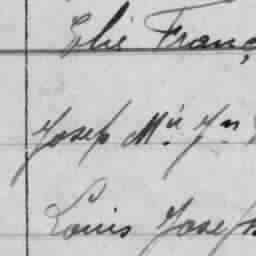 Elie Franç
Josep Mie Jn
Louis Joseph